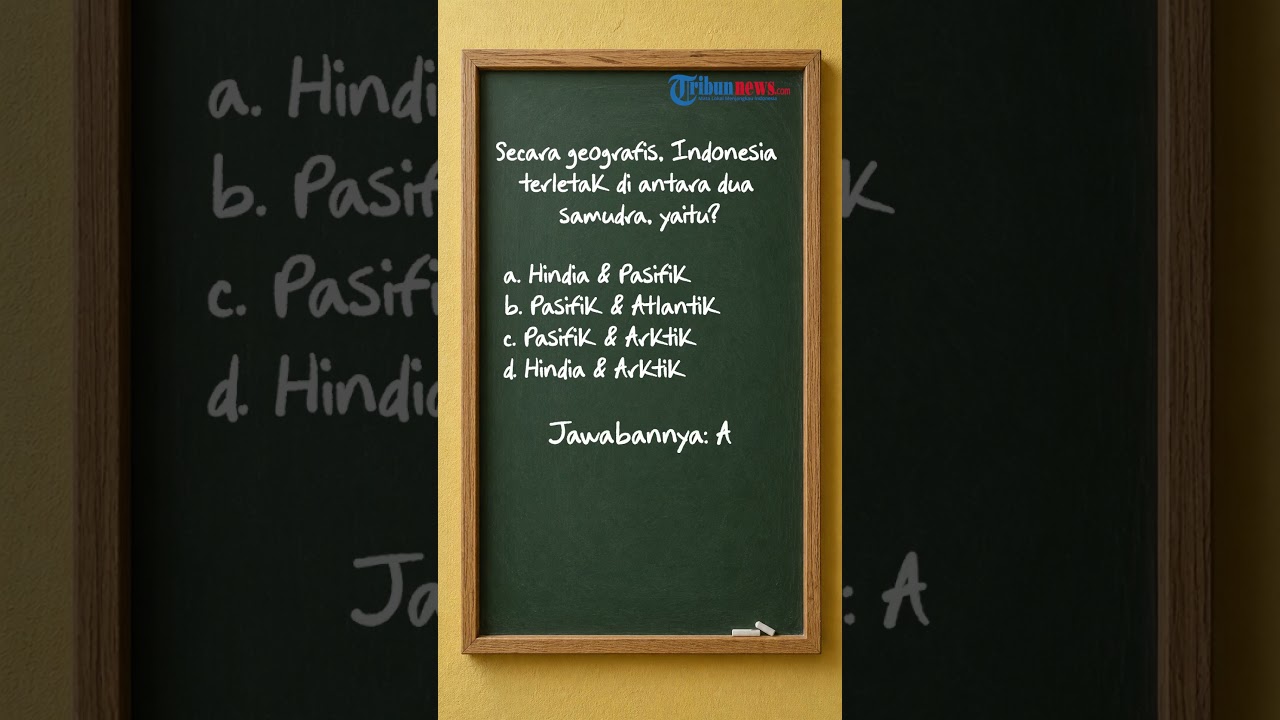 Tribunnews.com
Secara geografis, Indonesia
terletak di antara dua
samudra, yaitu?
a. Hindia & Pasifik
b. Pasifik & Atlantik
c. Pasifik & Arktik
d. Hindia & Arktik
Jawabannya: A